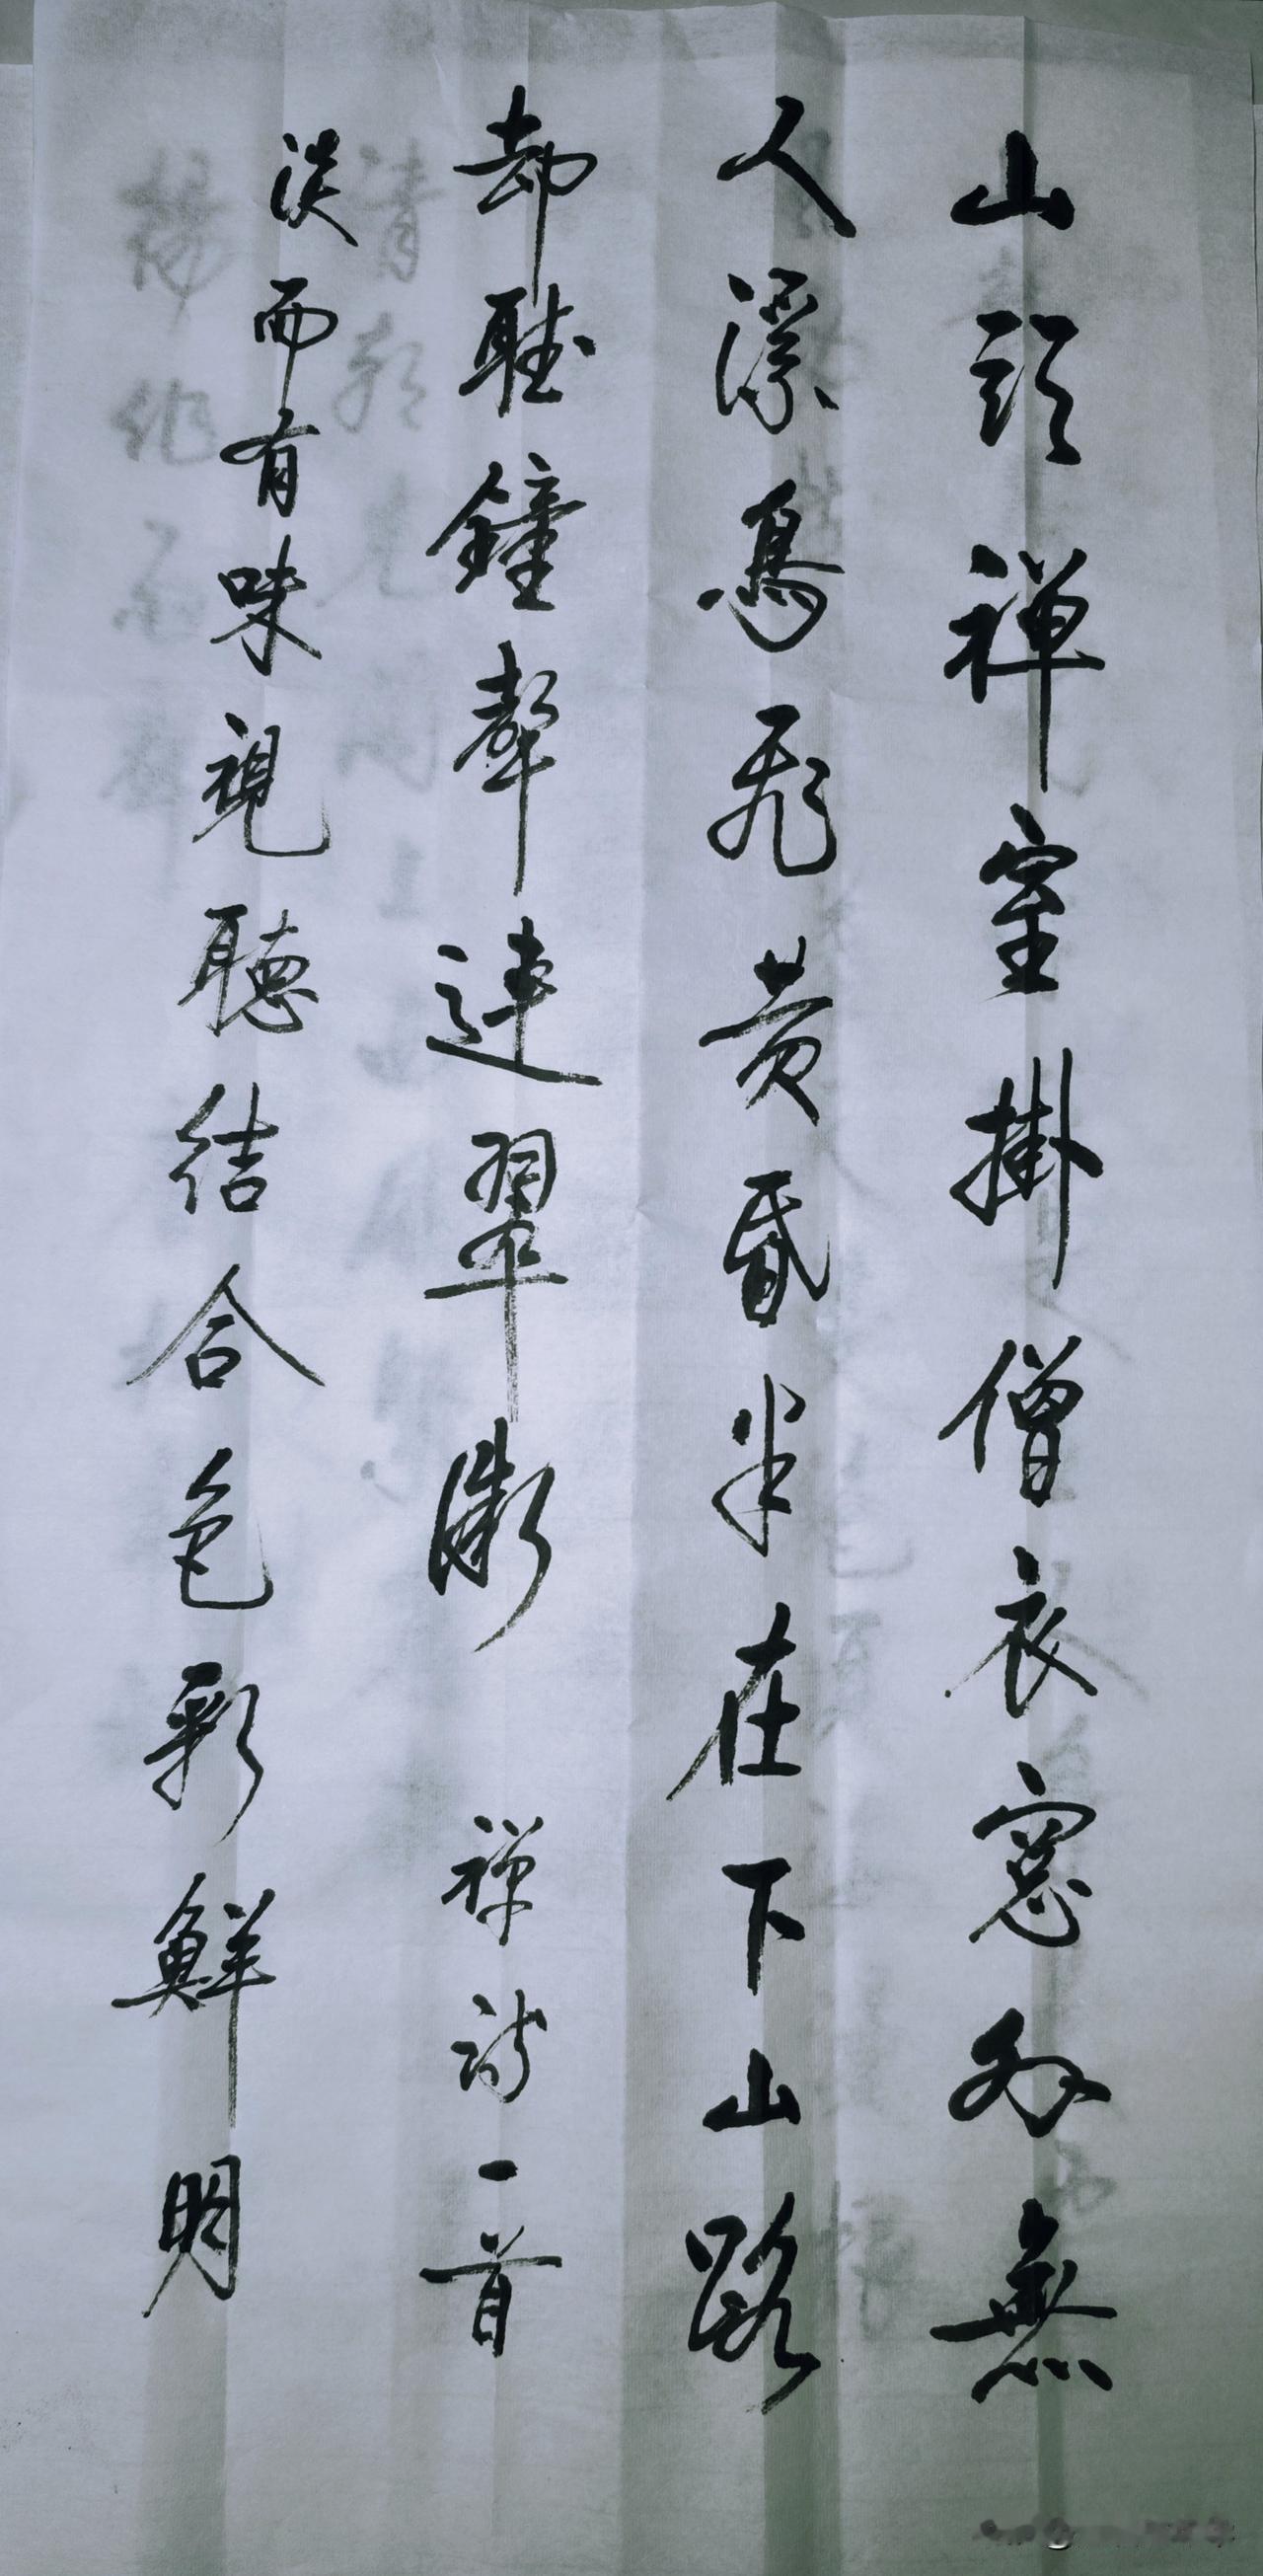 山頭禅室掛僧衣窓外無
人溪鳥飛黄昏半在下山路
却聴鐘聲連翠微 禅詩一首
淡而有味視聴結合色彩鮮明